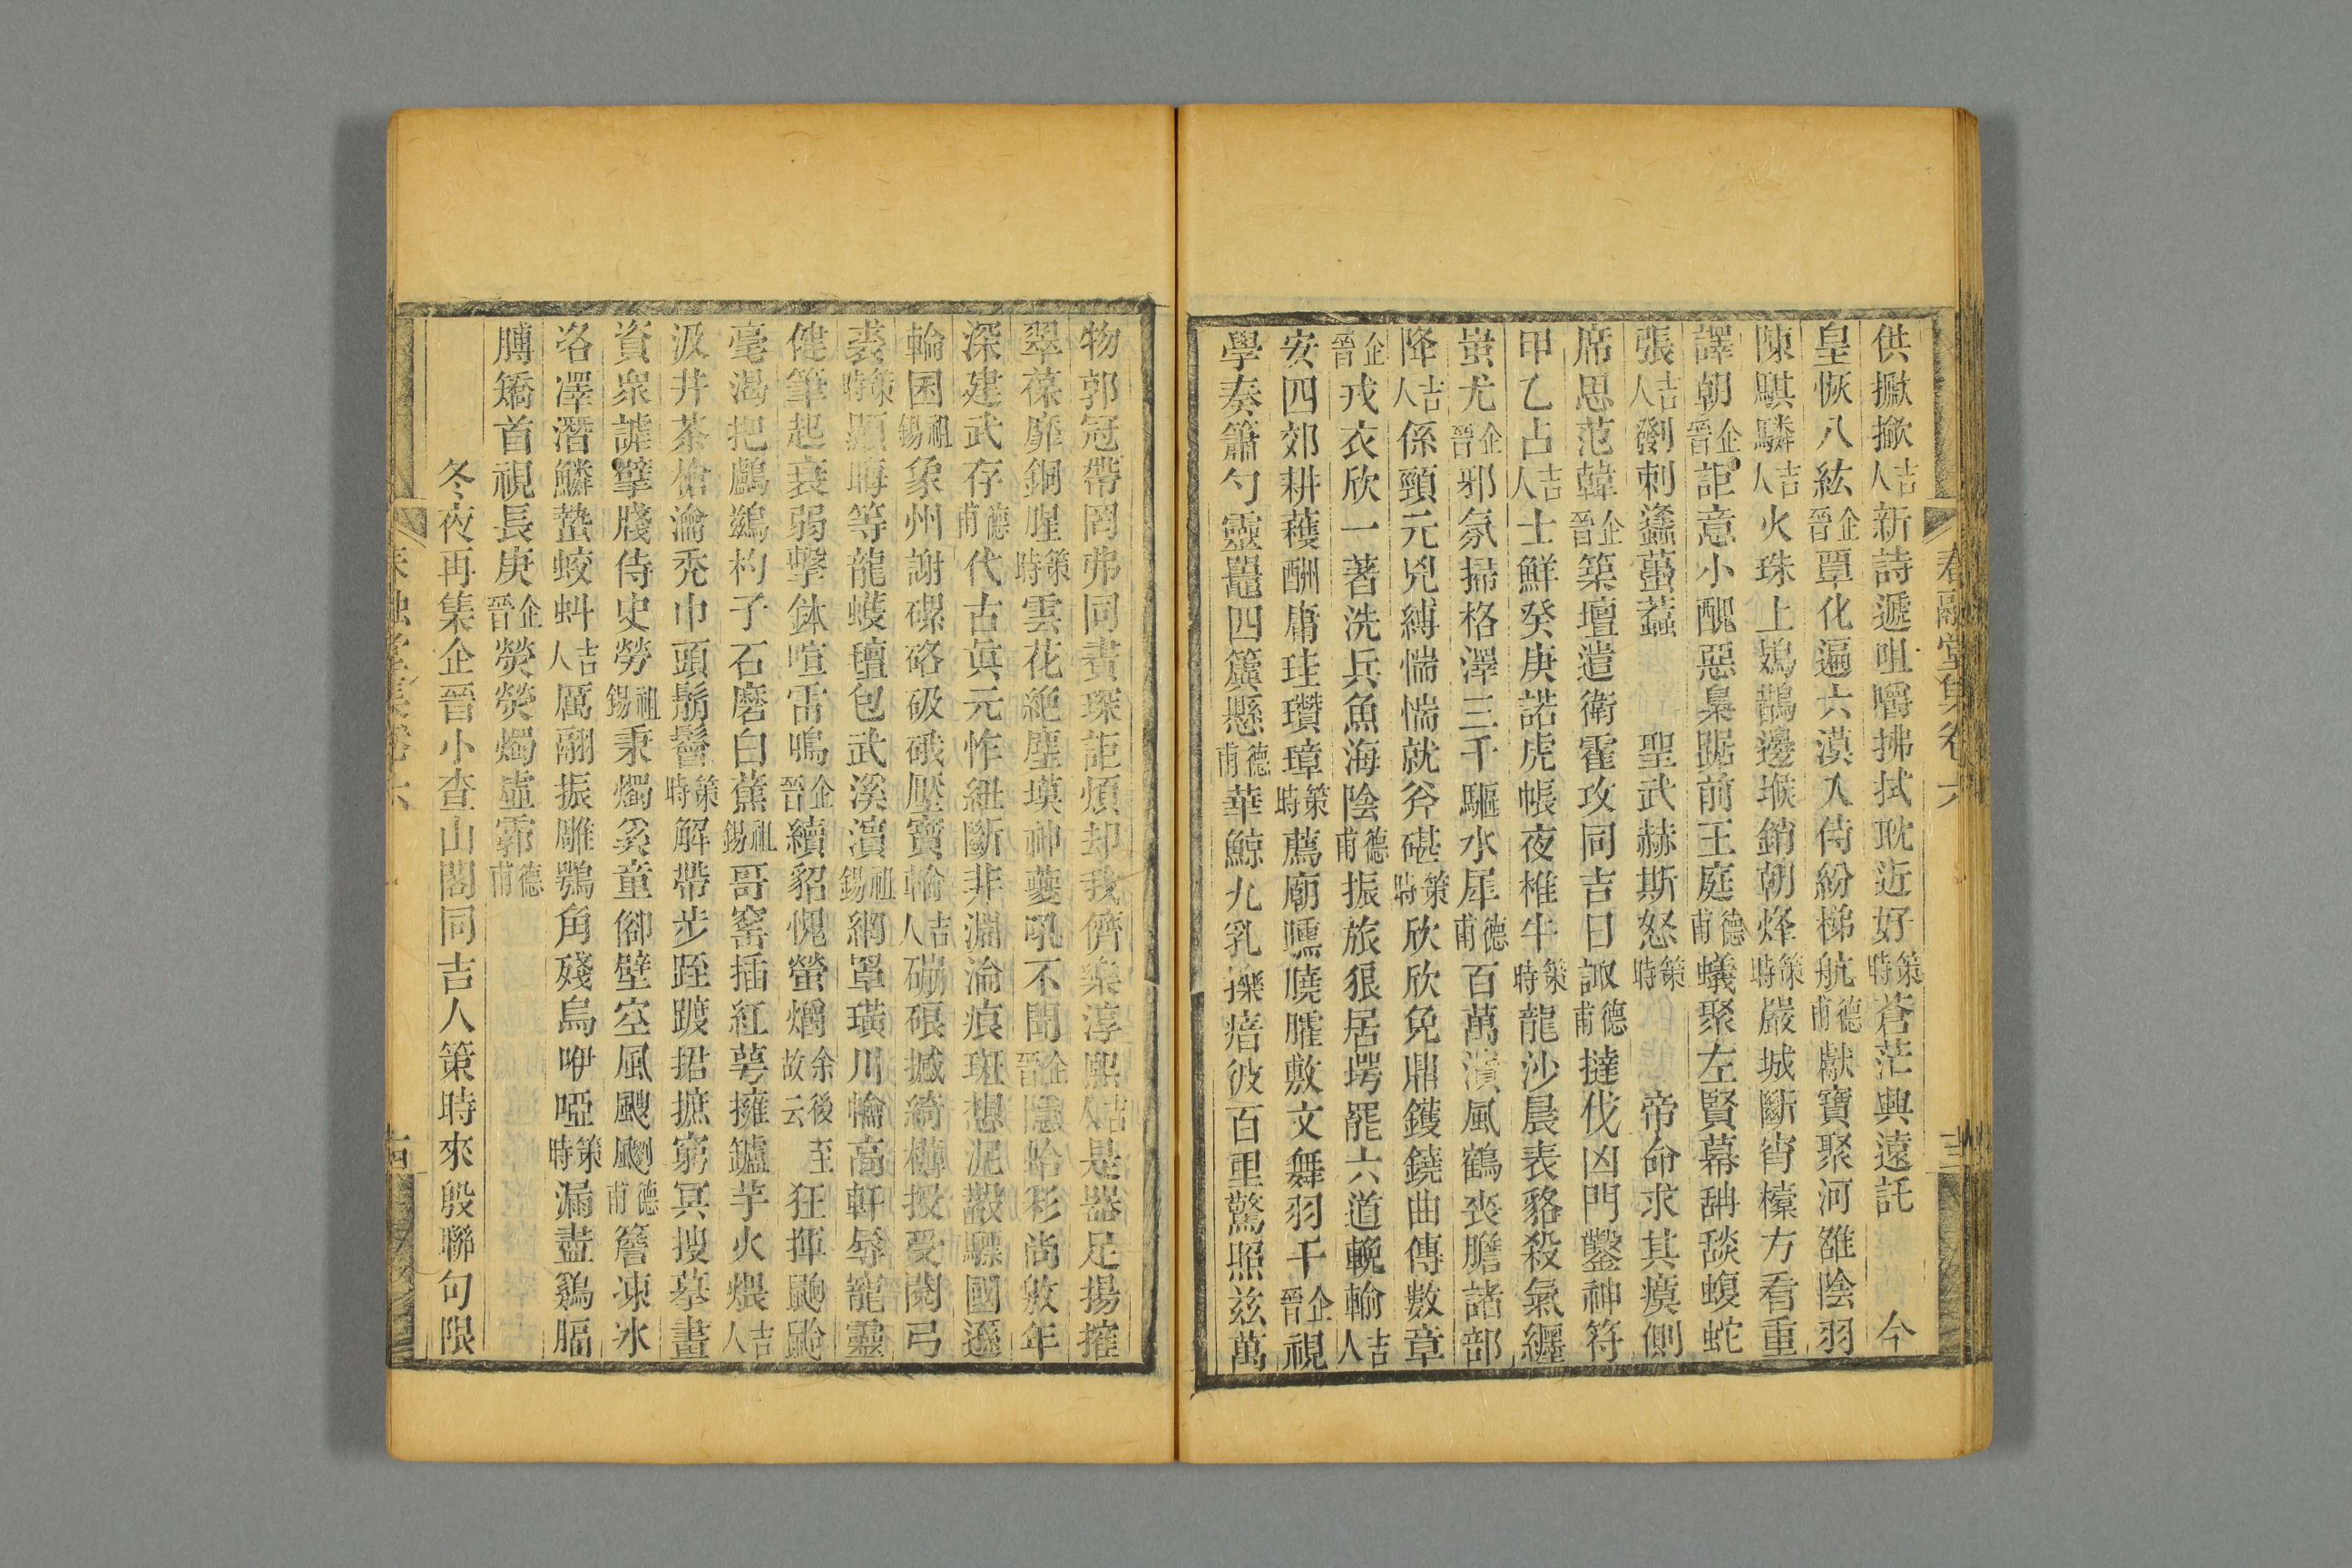 供撅撳吉人新詩遞咀嚼拂拭耽近好策時蒼茫興遠託 今
皇恢八紘企晉覃化遍六漠人侍紛梯航德甫獻寶聚河雒陰羽
陳騏驎吉人火珠上鴣鵲邊堠銷朝烽策時嚴城斷宵㯭方看重
譯朝企晉詎意小醜惡梟踞前王庭德甫蟻聚左賢幕舑舕蝮蛇
張吉人剟刺蠭蠆蠚 聖武赫斯怒策時 帝命求其瘼側
席思范韓企晉築壇遣衛霍攻同吉日諏德甫撻伐凶門鑿神符
甲乙占吉人士鮮癸庚諾虎帳夜椎牛策時龍沙晨表貉殺氣纏
蚩尤企晉邪氛掃格澤三千驅水犀德甫百萬潰風鶴喪膽諸部
降吉人係頸元兇縛惴惴就斧碪策時欣欣免鼎鑊鐃曲傳數章
企晉戎衣欣一著洗兵魚海陰德甫振旅狼居堮罷六道輓輸吉人
安四郊耕穫酬庸珪瓚璋策時薦廟臐膮臛敷文舞羽干企晉視
學奏籥勺靈鼉四簴懸德甫華鯨九乳擽痦彼百里驚照茲萬
春融堂集卷六
物郭冠帶罔弗同書琛詎煩却我儕樂淳熙吉人是器足揚搉
翠葆靡銅腥策時雲花絶塵墣神夔吼不聞企晉隱蛤彩尚敫年
深建武存德甫代古眞元怍紐斷非淵淪痕斑想泥瀫驃國遜
輪囷祖錫象州謝磥硌砐硪壓寶輪吉人磞硠撼綺欂授受閱弓
裘策時顯晦等龍蠖氊包武溪濱祖錫網罩璜川惀高軒辱寵靈
健筆起衰弱擊鉢喧雷鳴企晉續貂愧螢爝余後至故云狂揮鼬鼩
毫渴把鸕鷀杓子石磨白蕉祖錫哥窰插紅萼擁鑪芋火煨吉人
汲井茶槍瀹禿巾頭鬅鬙策時解帶步跮踱招摭窮冥搜摹畫
資衆謔擘牋侍史勞祖錫秉燭奚童卻壁空風颼飀德甫簷凍冰
洛澤潛鱗蟄蛟蚪吉人厲翮振雕鶚角殘烏咿啞策時漏盡鷄腷
膊矯首視長庚企晉熒熒燭虛霩德甫
冬夜再集企晉小查山閣同吉人策時來殷聯句限